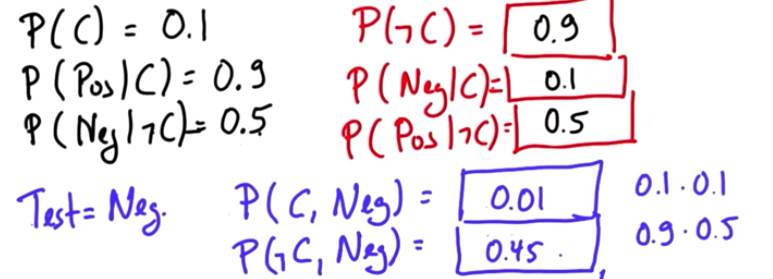 P(C) = 0.1
P(¬C) = 0.9
P(Pos|C) = 0.9
P(Neg|C) = 0.1
P(Neg|¬C) = 0.5
P(Pos|¬C) = 0.5
Test = Neg.
P(C, Neg) = 0.01 0.1 · 0.1
P(¬C, Neg) = 0.45 . 0.9 · 0.5